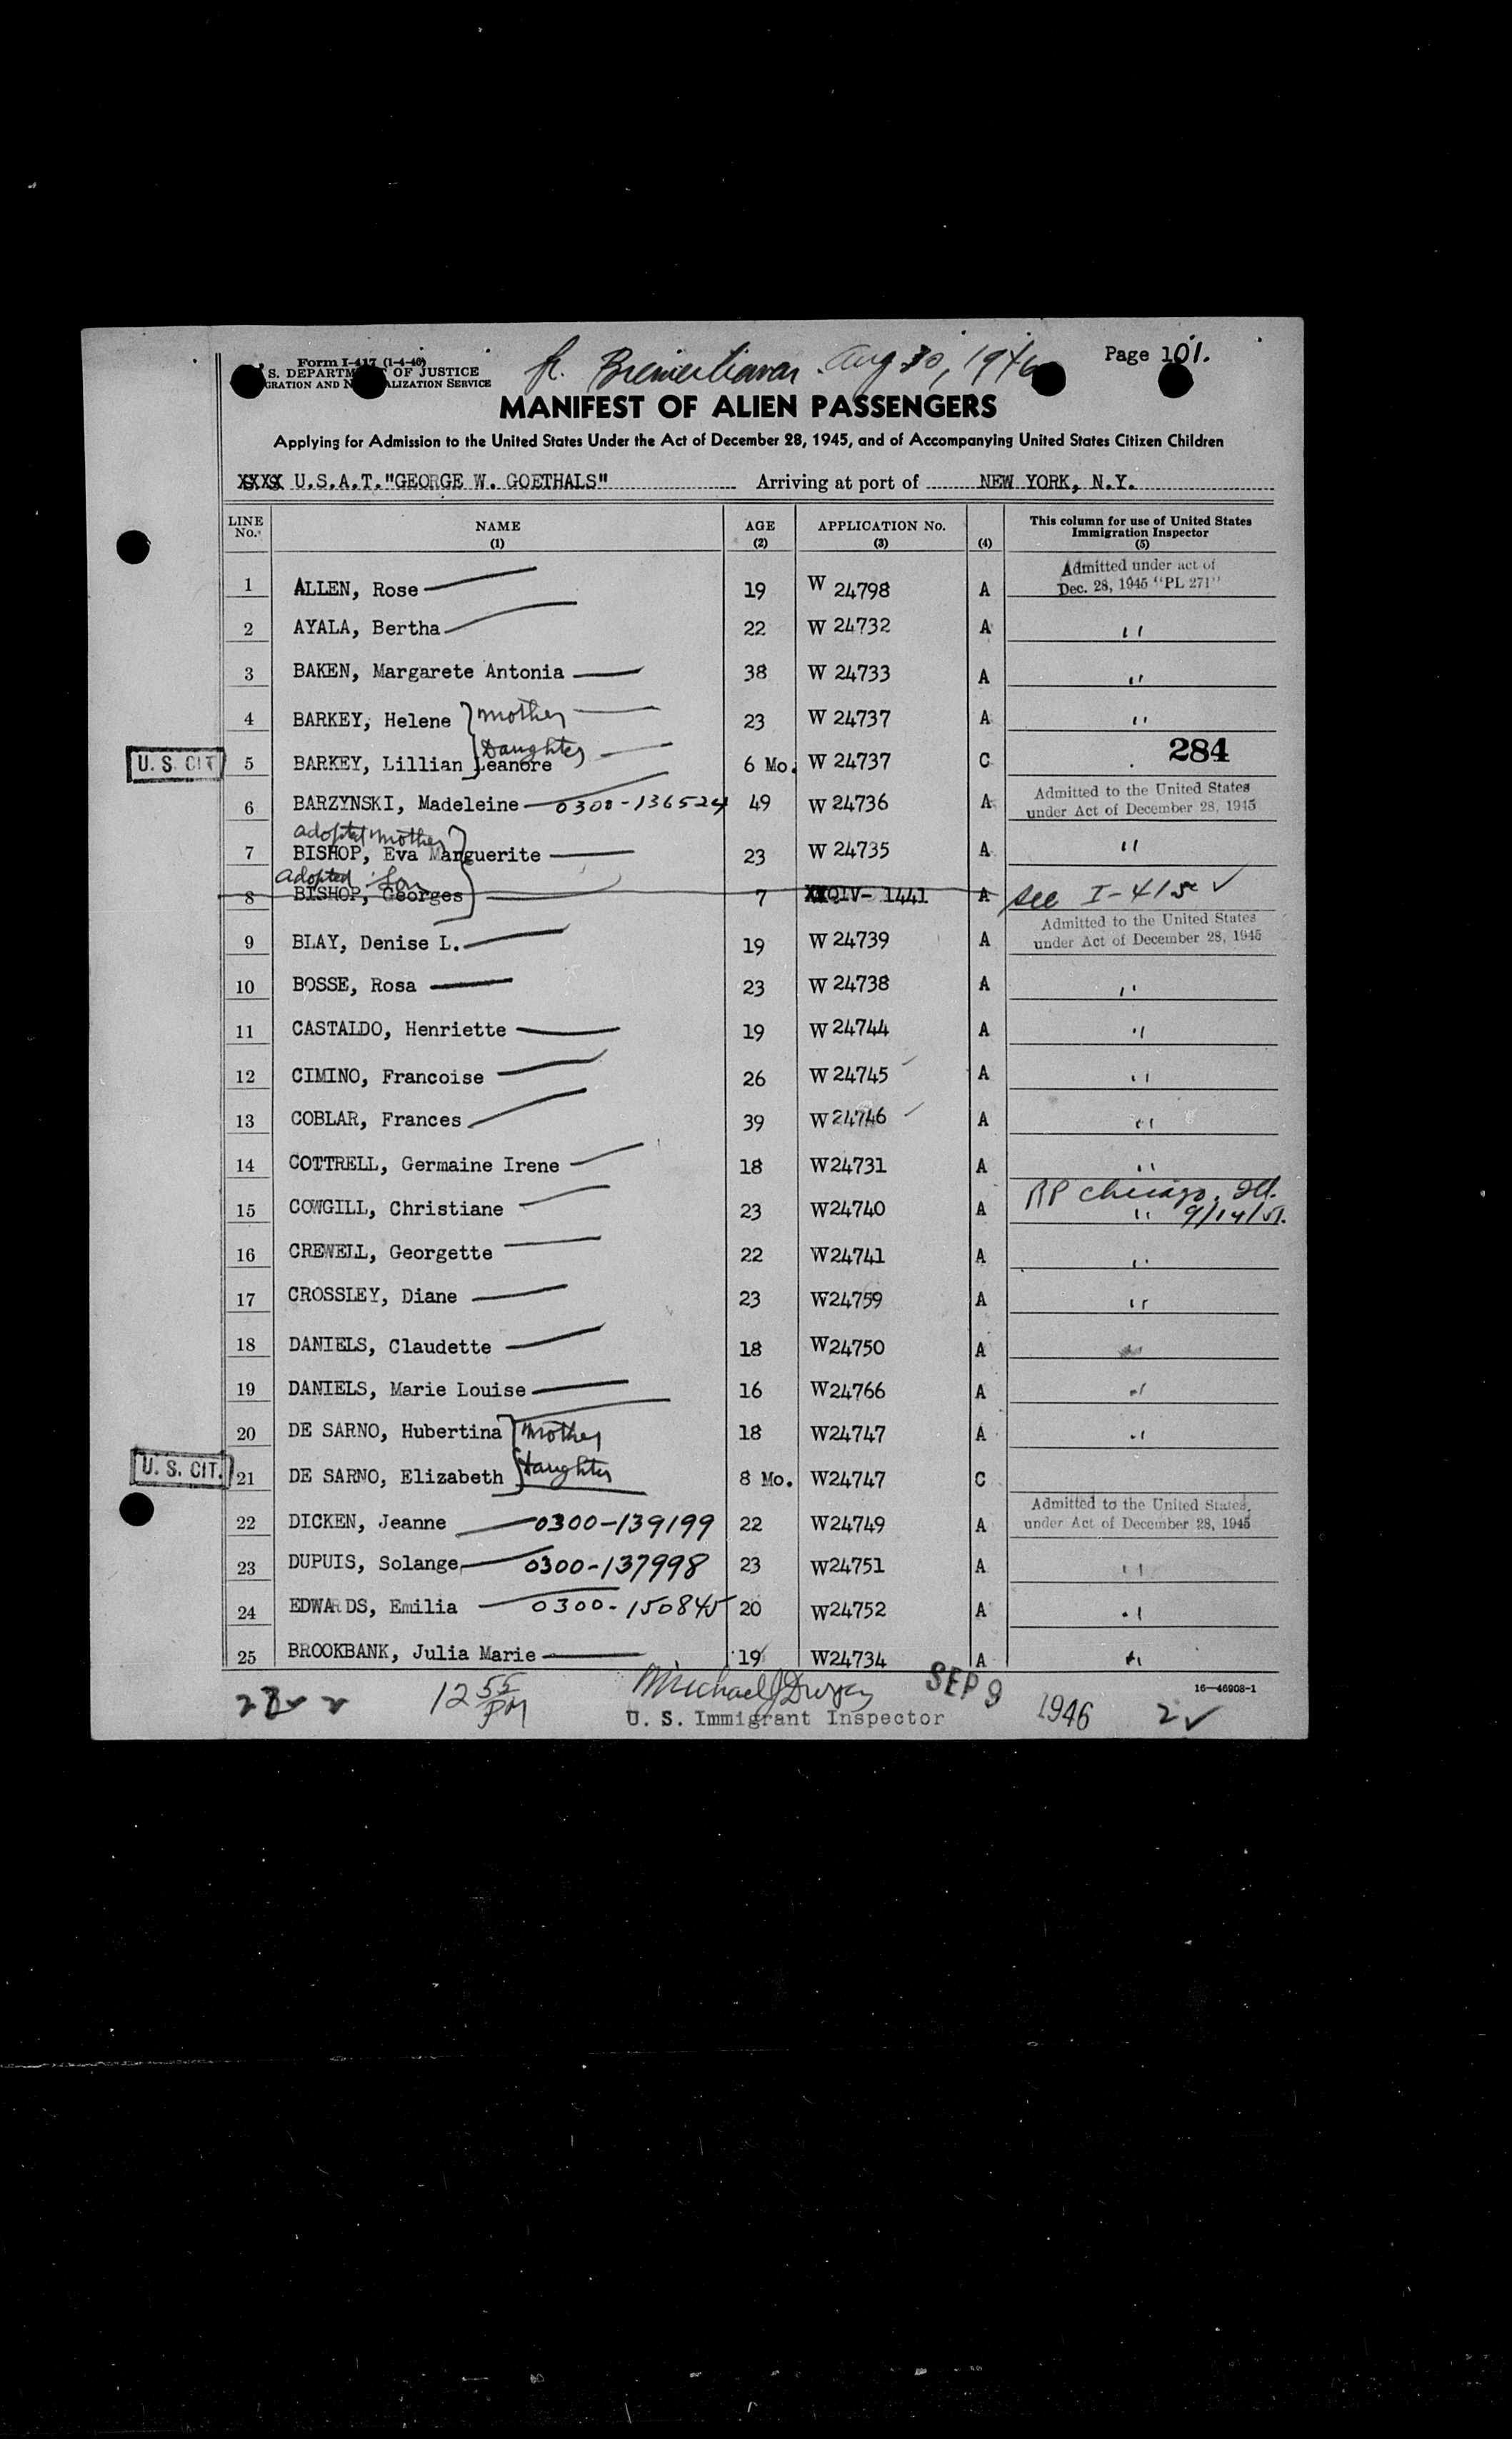 Form I-417 (1-4-46)
S. DEPARTMENT OF JUSTICE
GRATION AND NATURALIZATION SERVICE
fr. Bremerhaven Aug 30, 1946
Page 101.
MANIFEST OF ALIEN PASSENGERS
Applying for Admission to the United States Under the Act of December 28, 1945, and of Accompanying United States Citizen Children
XXXX U.S.A.T."GEORGE W. GOETHALS" Arriving at port of NEW YORK, N.Y.
LINE No. NAME (1) AGE (2) APPLICATION No. (3) (4) This column for use of United States Immigration Inspector (5)
1 ALLEN, Rose 19 W 24798 A Admitted under act of Dec. 28, 1945 "PL 271"
2 AYALA, Bertha 22 W 24732 A "
3 BAKEN, Margarete Antonia 38 W 24733 A "
4 BARKEY, Helene Mother 23 W 24737 A "
U. S. CIT 5 BARKEY, Lillian Leanore Daughter 6 Mo. W 24737 C 284
6 BARZYNSKI, Madeleine 0300-136524 49 W 24736 A Admitted to the United States under Act of December 28, 1945
adopted mother
7 BISHOP, Eva Marguerite 23 W 24735 A "
Adopted Son
8 BISHOP, Georges 7 XXQIV- 1441 A See I-415 ✓
9 BLAY, Denise L. 19 W 24739 A Admitted to the United States under Act of December 28, 1945
10 BOSSE, Rosa 23 W 24738 A "
11 CASTALDO, Henriette 19 W 24744 A "
12 CIMINO, Francoise 26 W 24745 A "
13 COBLAR, Frances 39 W 24746 A "
14 COTTRELL, Germaine Irene 18 W24731 A "
RP Chicago, Ill.
15 COWGILL, Christiane 23 W24740 A " 9/14/51.
16 CREWELL, Georgette 22 W24741 A "
17 CROSSLEY, Diane 23 W24759 A "
18 DANIELS, Claudette 18 W24750 A "
19 DANIELS, Marie Louise 16 W24766 A "
20 DE SARNO, Hubertina Mother 18 W24747 A "
U. S. CIT. 21 DE SARNO, Elizabeth Daughter 8 Mo. W24747 C
22 DICKEN, Jeanne 0300-139199 22 W24749 A Admitted to the United States, under Act of December 28, 1945
23 DUPUIS, Solange 0300-137998 23 W24751 A "
24 EDWARDS, Emilia 0300-150845 20 W24752 A "
25 BROOKBANK, Julia Marie 19 W24734 A "
16—46908-1
12 55 PM Michael J SEP 9 1946 2 ✓
U. S. Immigrant Inspector